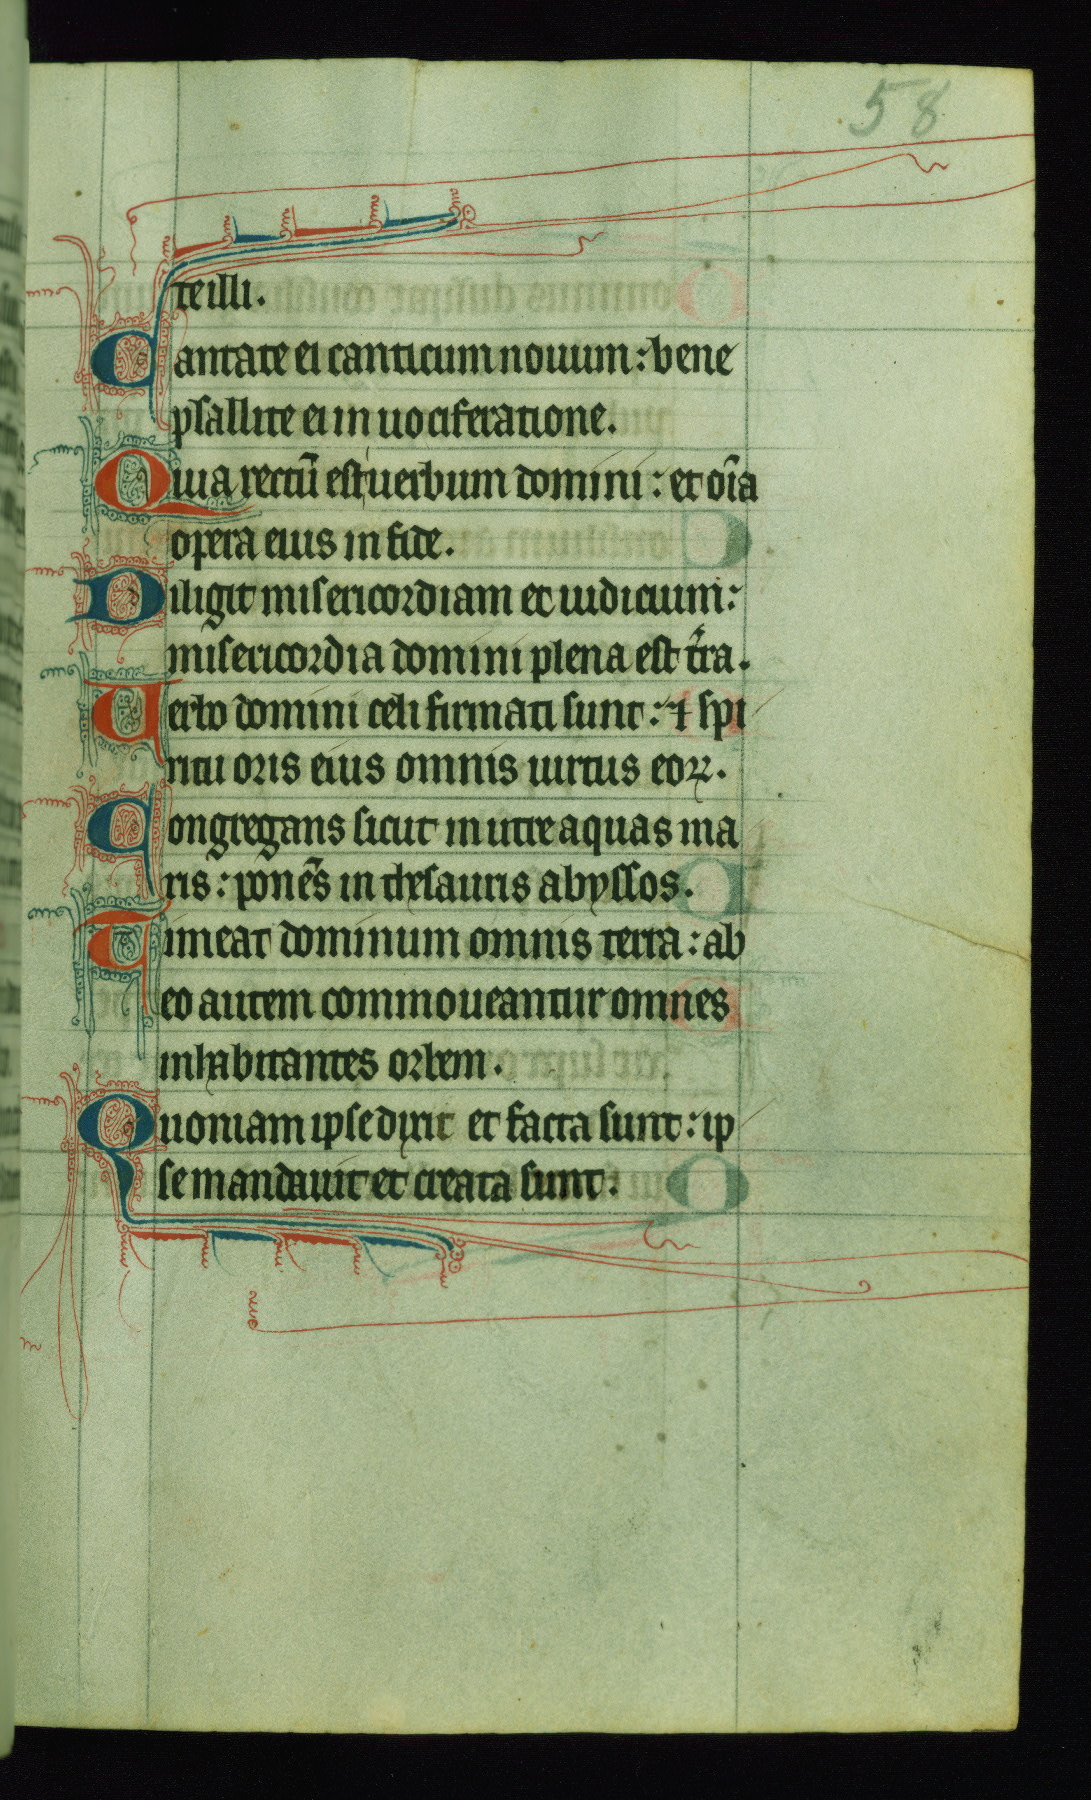 58
te illi.
Cantate ei canticum nouum: bene
psallite ei in uociferatione.
Quia rectū est uerbum domini: et oīa
opera eius in fide.
Diligit misericordiam et iudicium:
misericordia domini plena est t̄ra.
Uerbo domini celi firmati sunt: ⁊ spi
ritu oris eius omnis uirtus eoꝝ.
Congregans sicut in utre aquas ma
ris: ponēs in thesauris abyssos.
Timeat dominum omnis terra: ab
eo autem commoueantur omnes
inhabitantes orbem.
Quoniam ipse dixit et facta sunt: ip
se mandauit et creata sunt.